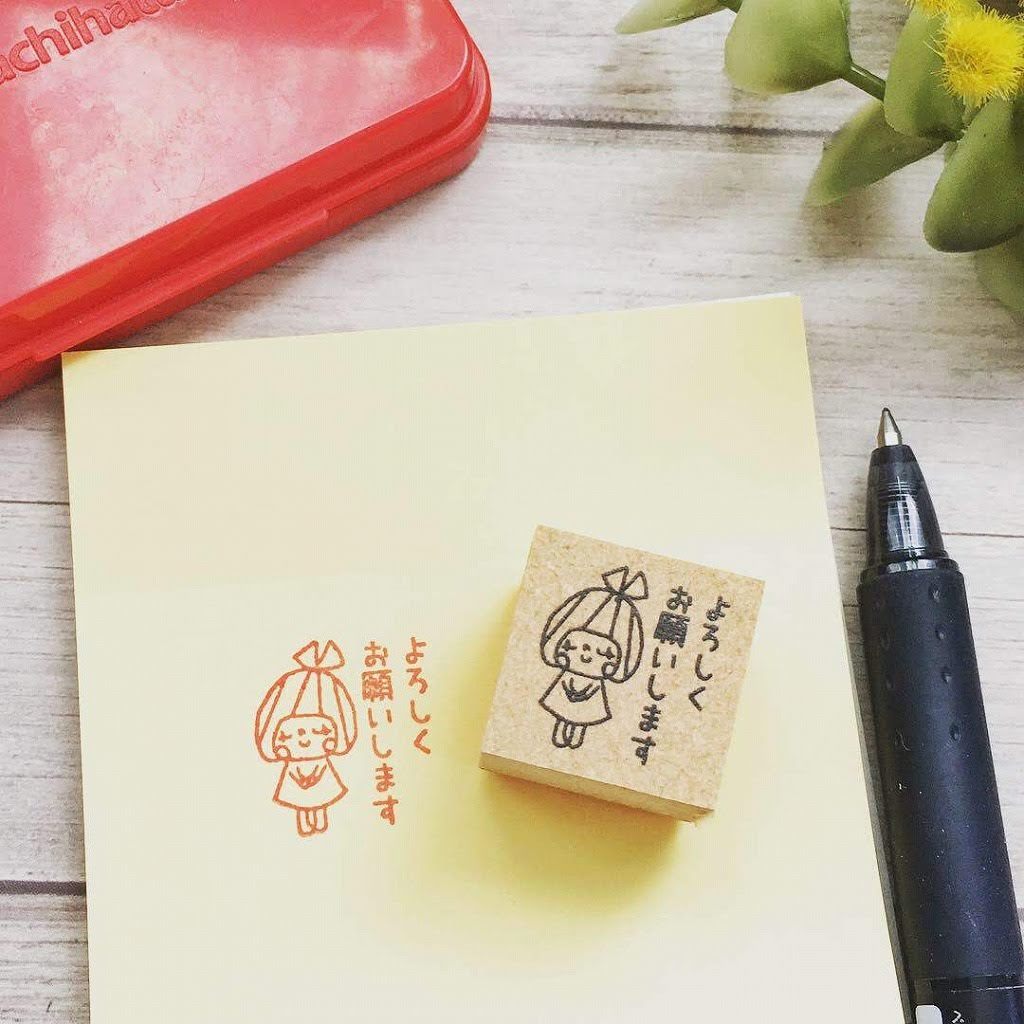 achihat
よろしく
お願いします
よろしく
お願いします